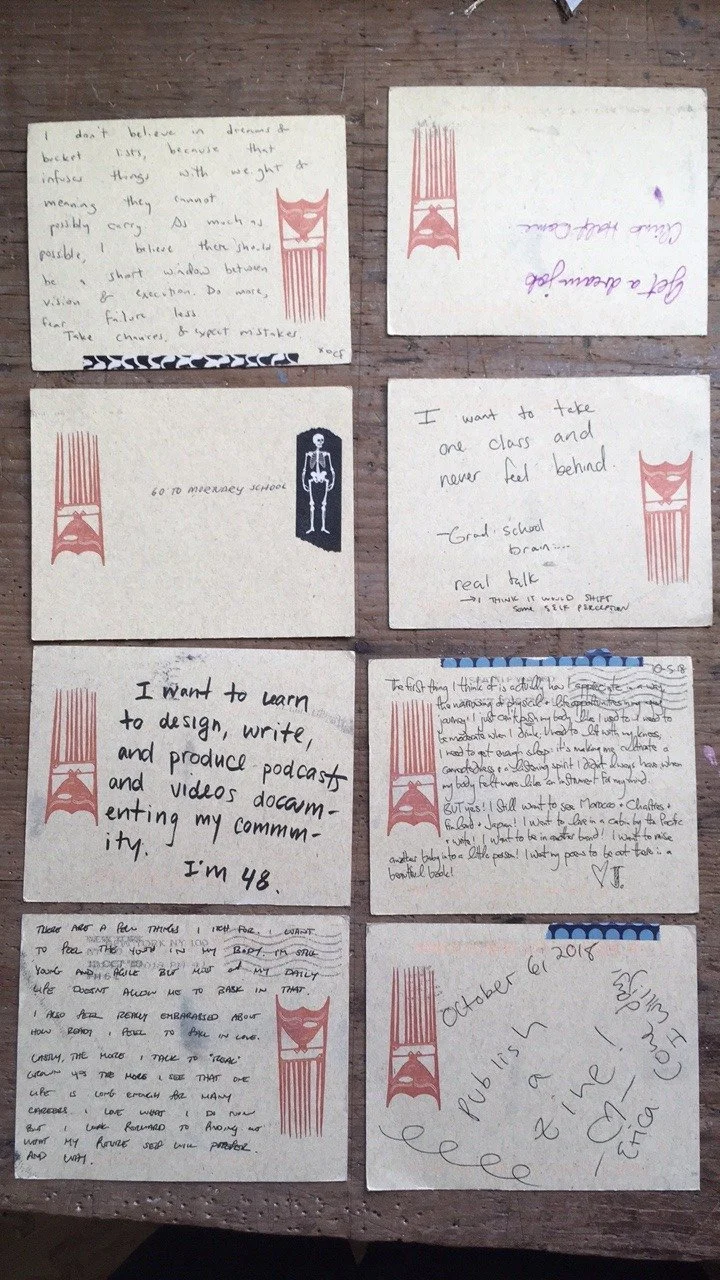 I don't believe in dreams &
bucket lists, because that
infuses things with weight &
meaning they cannot
possibly carry. As much as
possible, I believe there should
be a short window between
vision & execution. Do more,
fear failure less
Take chances, & expect mistakes.
xocs
Get a dream job
Climb Half Dome
GO TO MORTUARY SCHOOL
I want to take
one class and
never feel behind.
-Grad school
brain....
real talk
→ I THINK IT WOULD SHIFT
SOME SELF PERCEPTION
I want to learn
to design, write,
and produce podcasts
and videos docum-
enting my commun-
ity.
I'm 48.
10-5-18
The first thing I think of is actually how I appreciate in a way
the narrowing of physical + life opportunities in my
journey! I just can't push my body like I used to. I need to
be moderate when I drink. I need to lift with my knees,
I need to get enough sleep. it's making me cultivate a
connectedness + listening spirit I didn't always have when
my body felt more like an instrument for my mind.
BUT yes! I still want to see Morocco +
Finland + Japan! I want to live in a cabin by the Pacific
+ write! I want to be in another band! I want to raise
another baby into a little person! I want my poems to be out there in a
beautiful book!
THERE ARE A FEW THINGS I ITCH FOR. I WANT
TO FEEL THE YOUTH IN MY BODY. I'M STILL
YOUNG AND AGILE BUT MOST OF MY DAILY
LIFE DOESNT ALLOW ME TO BASK IN THAT.
I ALSO FEEL REALLY EMBARASSED ABOUT
HOW READY I FEEL TO FALL IN LOVE.
LASTLY, THE MORE I TALK TO "REAL"
GROWN UPS THE MORE I SEE THAT ONE
LIFE IS LONG ENOUGH FOR MANY
CAREERS. I LOVE WHAT I DO NOW
BUT I LOOK FORWARD TO FINDING OUT
WHAT MY FUTURE SELF WILL PREFER.
AND WAY.
October 6, 2018
Publish
a
zine!
-Erica